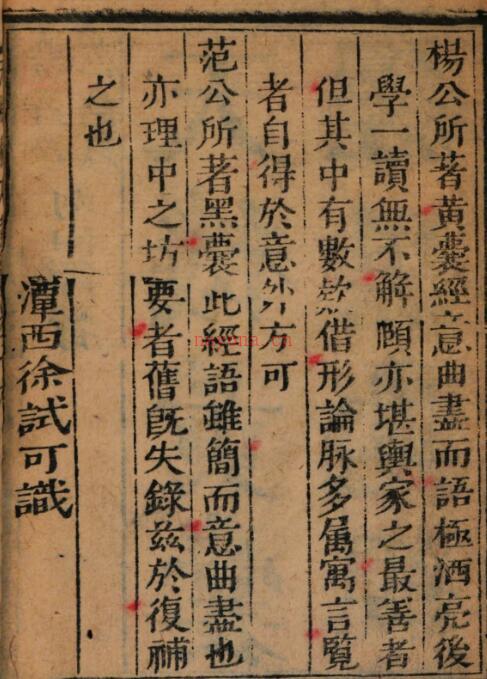 楊公所著黄囊經意曲盡而語極洒亮後
學一讀無不解頤亦堪輿家之最善者
但其中有數欵借形論脉多属寓言覽
者自得於意外方可
范公所著黑囊此經語雖簡而意曲盡也
亦理中之坊要者舊旣失錄兹於復補
之也
潭西徐試可識